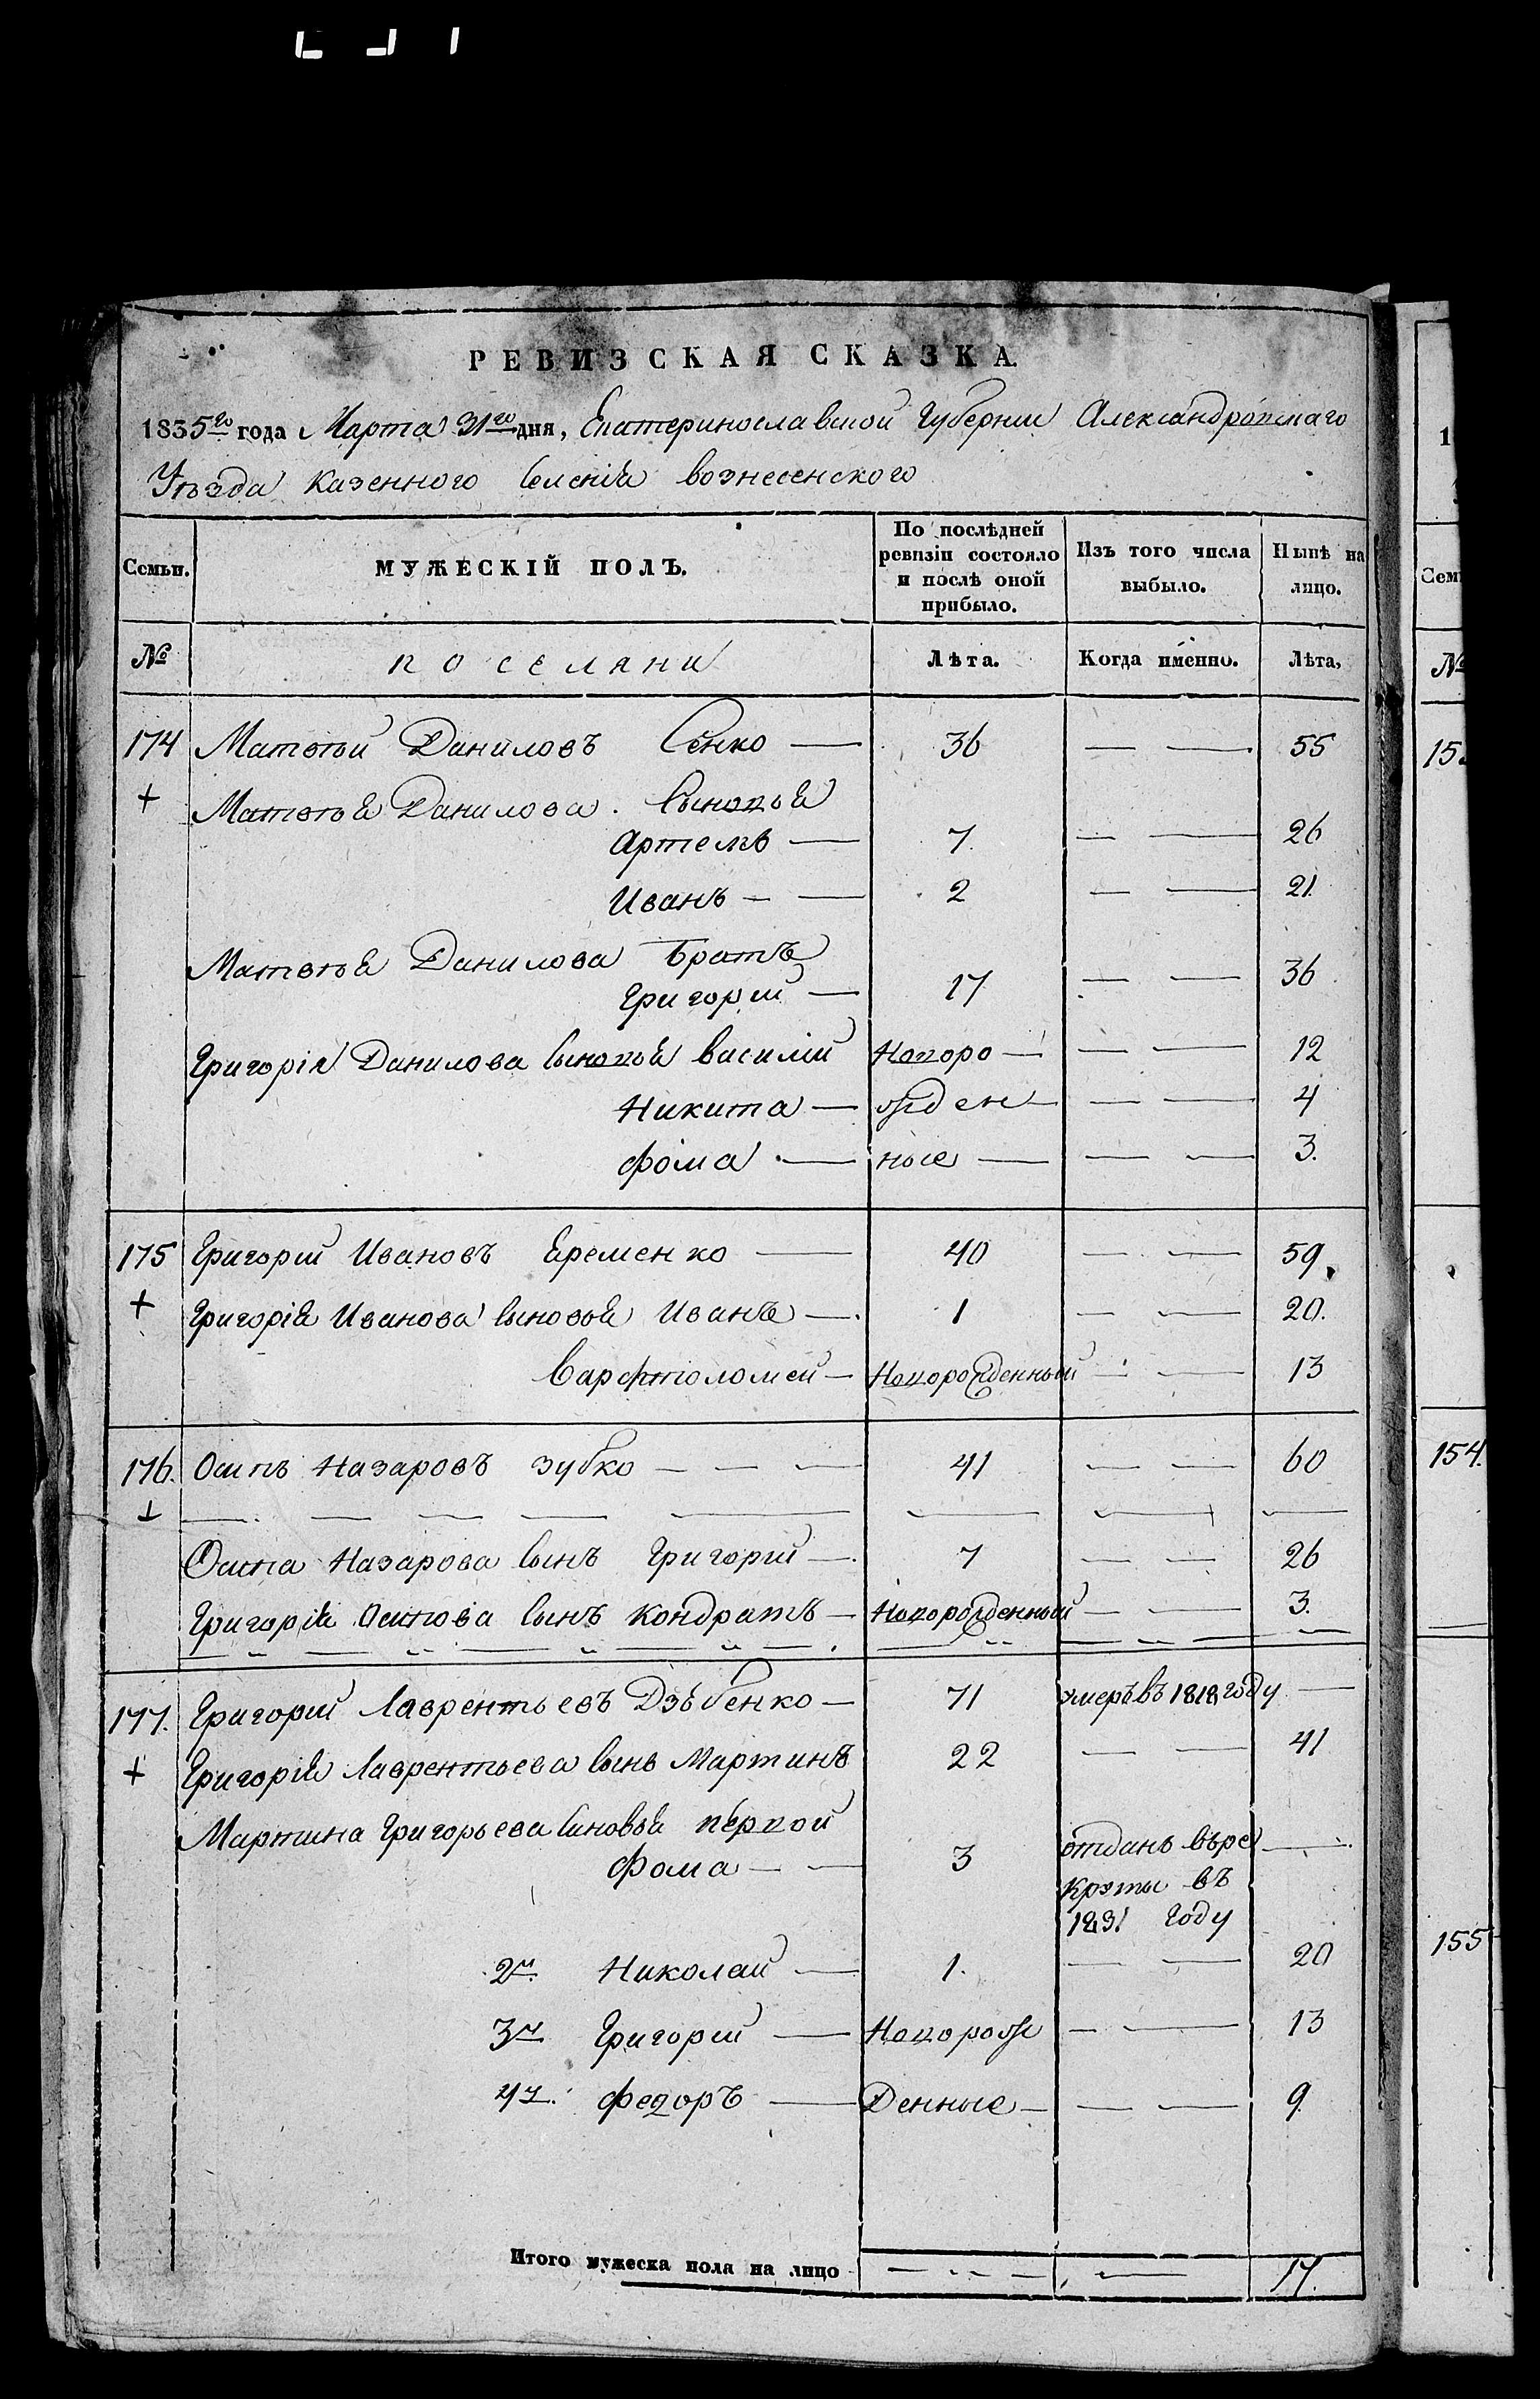 РЕВИЗСКАЯ СКАЗКА.
1835го года Марта 31го дня, Екатеринославской Губернии Александровскаго
Уѣзда Казенного Селения вознесенского
Семьи. МУЖЕСКІЙ ПОЛЪ. По послѣдней ревизіи состояло и послѣ оной прибыло. Изъ того числа выбыло. Нынѣ на лицо.
№ поселяни Лѣта. Когда именно. Лѣта,
174 Матвѣй Даниловъ Сенко — 36 — — 55
+ Матвѣя Данилова Сыновья
Артемъ — 7. — — 26
Иванъ — — 2 — — 21.
Матвѣя Данилова Братъ
Григорий — 17 — — 36
Григорія Данилова Сыновья василий Новоро — — — 12
Никита — жден — — — 4
фома — ные — — — 3.
175 Григорий Ивановъ Еременко — 40 — — 59.
+ Григорія Иванова Сыновья Иванъ — 1 — — 20.
Варфтоломей — Новорожденный — — 13
176. Осипъ Назаровъ зубко — — — 41 — — 60
+
Осипа Назарова Сынъ Григорий — 7 — — 26
Григорія Осипова Сынъ Кондратъ — Новорожденный — — 3.
177. Григорий Лаврентьевъ Дзюбенко — 71 умеръ въ 1818 году —
+ Григорія Лаврентьева Сынъ Мартинъ 22 — — 41
Мартина Григорьева Синовья первой
Фома — — 3 отданъ въ ре —
круты въ
1831 году
2й Николай — 1. — — 20
3й Григорий — Новорож — — 13
4й. федоръ — Денные — — — 9.
Итого мужеска пола на лицо — — — — 17.
1
Сем
№
15
154.
155